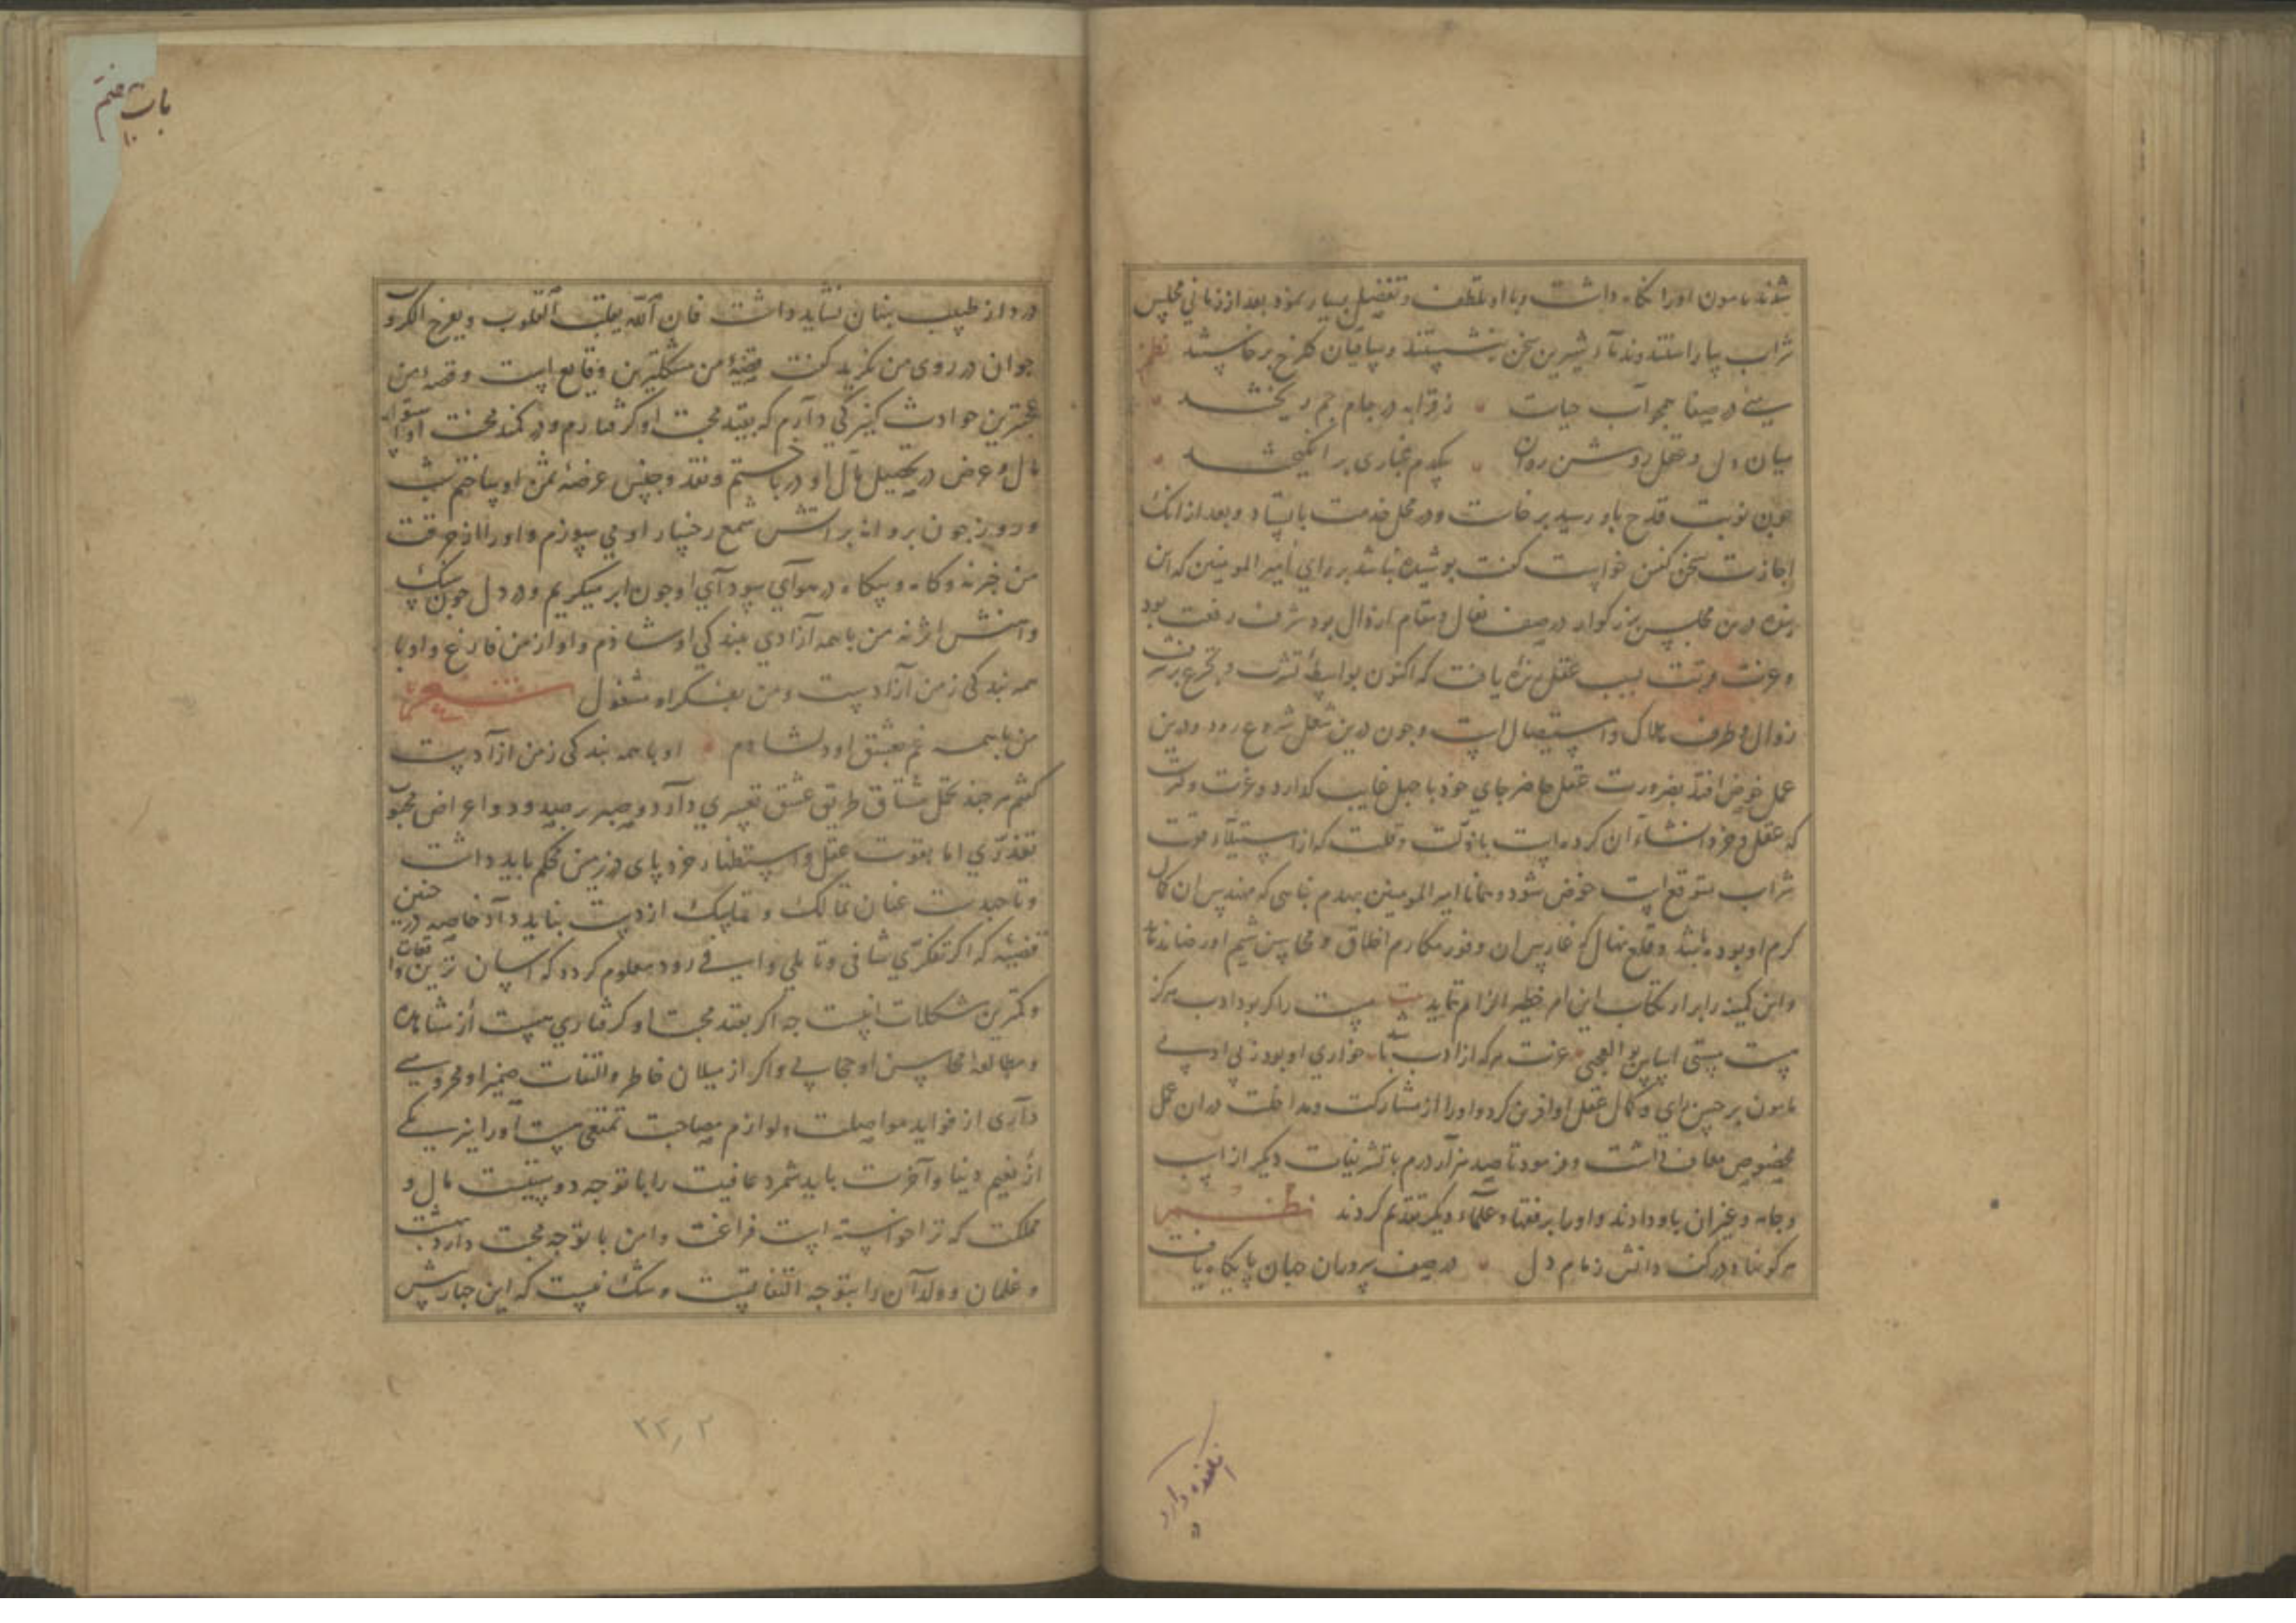 شدند مامون او را نگاه داشت و با او تلطف و تفضیل بسیار نمود بعد از زمانی مجلس
شراب بیاراستند و ندمآء شیرین سخن بنشستند و ساقیان گلرخ برخاستند نظم
میئ در صفا همچو آب حیات ز قرابه در جام جم ریختند
میان دل و عقل روشن روان یکدم غباری برانگیختند
چون نوبت قدح باو رسید برخاست و در محل خدمت بایستاد و بعد از انک
اجازت سخن گفتن خواست گفت پوشیده نباشد بر رای امیر المومنین که این
بنده درین مجلس بزرگوار در صف نعال و مقام ارذال بود شرف رفعت
و عزت قربت بسبب عقل یافت که اکنون بواسطهٔ شرب و تجرع
زوال و طرف هلاک و استیصال است و چون درین شغل شروع رود و درین
عمل خوض افتد بضرورت عقل حاضر جای خود با جهل غایب گذارد و عزت
که عقل و خرد انشاء آن کرده است با ذلت و قلت که از استیلآء قوت
شراب متوقع است عوض شود و همانا امیر المومنین بهدم بنایی که مهندس ان کمال
کرم او بوده باشد و قلع نهال که غارس ان وفور مکارم اخلاق و محاسن شیم او رضا ندهد
و این کمینه را بر ارتکاب این امر خطیر الزام ننماید
هست مستی اساس بو العجبی عزت هرکه از ادب خواری او بود ز بی ادبی
مامون بر حسن رای و کمال عقل او افرین کرد و او را از مشارکت و مداخلت دران عمل
مخصوص معاف داشت و فرمود تا صد هزار درم با تشریفات دیگر از اسب
و جامه و غیر ان باو دادند و او را بر فقها و علمآء دیگر تقدیم کردند نظم
هرکو نهاد در کف دانش زمام دل در صف سروران جهان پایگاه یافت
انکه داد
باب هفتم
درد از طبیب پنهان نشاید داشت فان الله یقلب القلوب و یفرج الکروب
جوان در روی من نگرید گفت قضیهٔ من مشکلترین وقایع است و قصهٔ من
عجبترین حوادث کنیزکی دارم که بقید محبت او گرفتارم و در کمند محنت او
مال و عرض در تحصیل مال او درباختم و نقد و جنس عرضهٔ ثمن او ساختم شب
و روز چون پروانه بر اتش شمع رخسار او می سوزم و او را از حرقت
من خبر نه و گاه و بیگاه در هوآی سودآی او چون ابر میگریم و در دل چون سنگ
اثر نه من با همه آزادی ببندگی او شادم و او از من فارغ و او با
همه بندگی ز من آزادست و من بفکر او مشغول شعر
من با همه غم بعشق او دلشادم او با همه بندگی ز من ازآدست
گفتم هر چند تحمل مشاق طریق عشق تعسری دارد و صبر بر صدود و اعراض محبوب
تعذری اما بقوت عقل و استظهار خرد پای در زمین محکم باید داشت
و تا حد عنان تمالک و تماسک از دست نباید داد خاصه در چنین
قضیه که اگر تفکری شافی و تاملی وافی رود معلوم گردد که آسان ترین واقعات
و کمترین مشکلات اینست چه اگر بقید محبت او گرفتاری هست از مشاهده
و مطالعهٔ محاسن او حجابی و اگر از میلان خاطر و التفات ضمیر او محرومیی
داری از فواید مواصلت و لوازم مصاحبت تمتعی هست و این را نیز یکی
از نعیم دنیا و آخرت باید شمرد عافیت را با تو چه دوستیست مال و
مملکت که ترا خواسته است فراغت و امن با تو چه محبت دارد بهشت
و غلمان و ولدآن را بتو چه التفاتیست و شک نیست که این جبار
۲۳٫۲